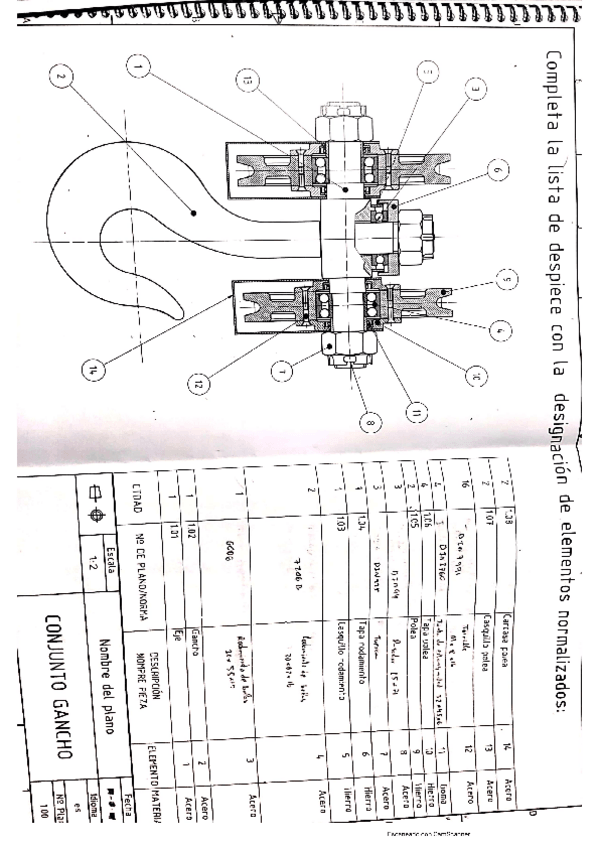 Completa la lista de despiece con la designación de elementos normalizados:
1
2
3
4
5
6
7
8
9
10
11
12
13
14
2 1.08 Carcasa polea 14 Acero
2 1.07 Casquillo polea 13 Acero
16 DIN 7991 Tornillo 12 Acero
4 DIN 3760 11 Goma
4 1.06 Tapa polea 10 Hierro
2 1.05 Polea 9 Hierro
3 8 Acero
3 7 Acero
4 1.04 Tapa rodamiento 6 Hierro
1 1.03 Casquillo rodamiento 5 Hierro
2 7206 B Rodamiento de bolas 4 Acero
1 Rodamiento de bolas 3 Acero
1 1.02 Gancho 2 Acero
1 1.01 Eje 1 Acero
CTDAD Nº DE PLANO/NORMA DESCRIPCIÓN NOMBRE PIEZA ELEMENTO MATERIAL
Escala 1:2
Nombre del plano
CONJUNTO GANCHO
Fecha
Idioma
es
Nº Pla
100
Escaneado con CamScanner